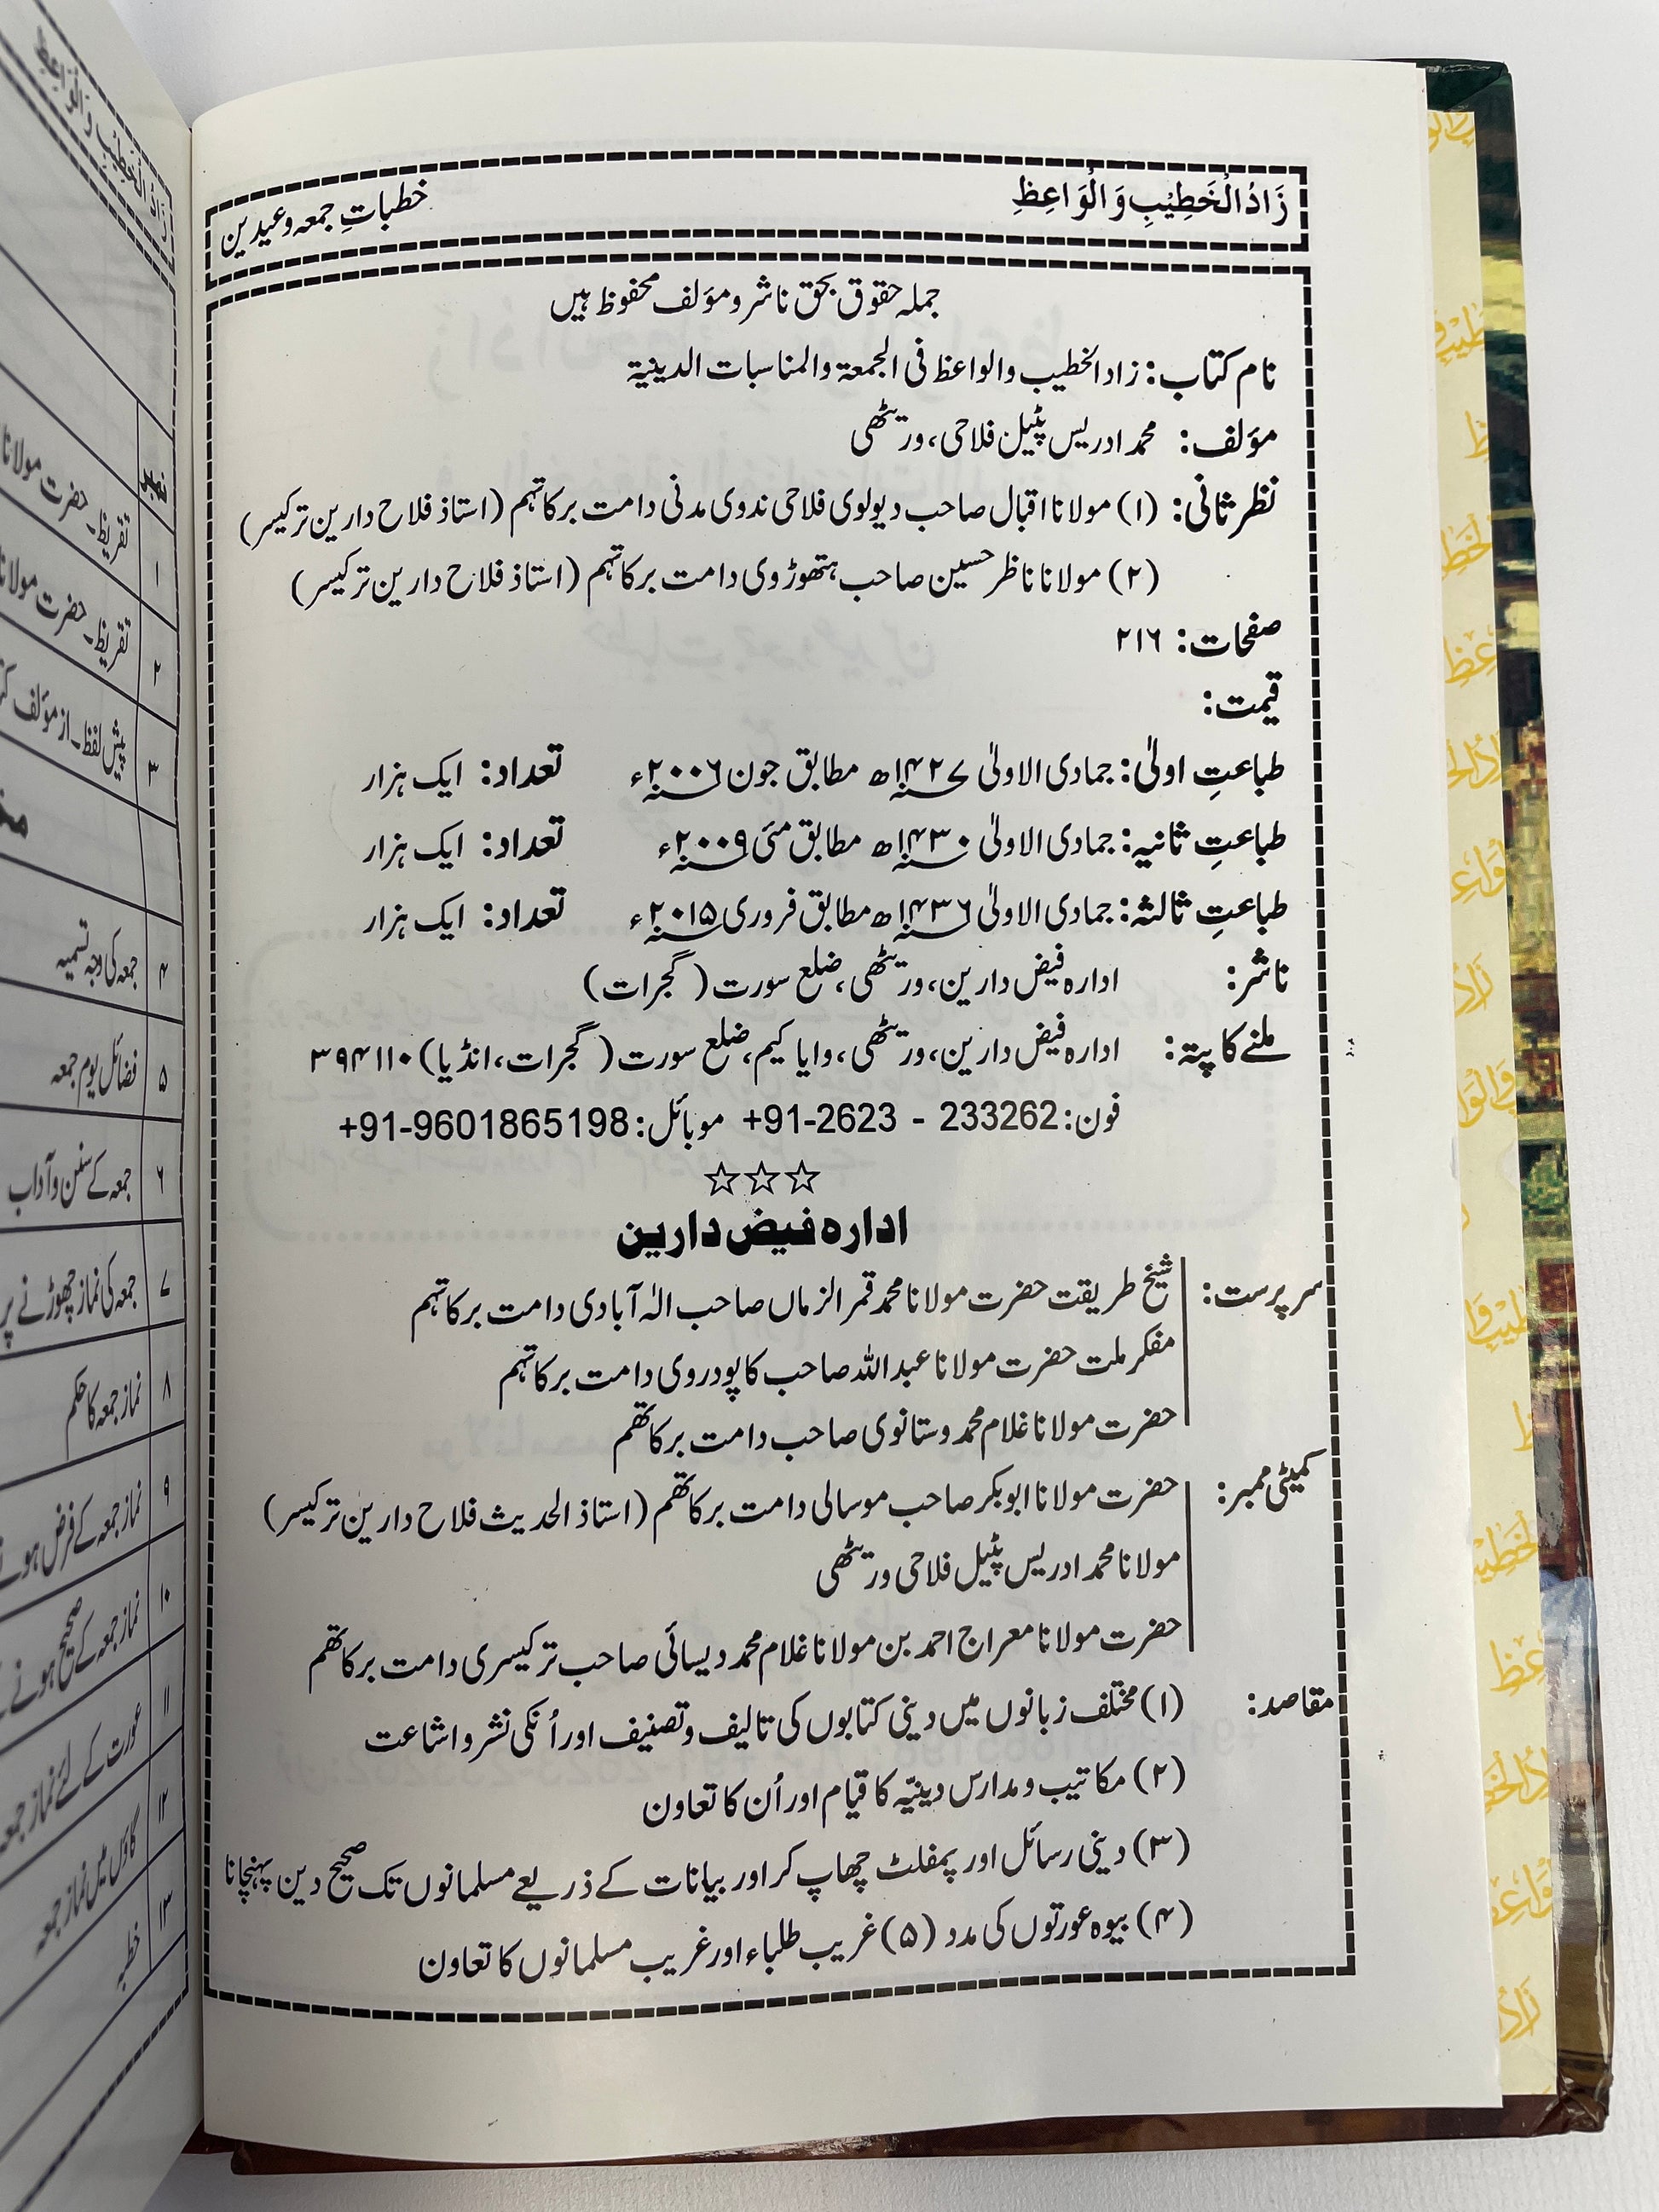 زَادُ الْخَطِيْبِ وَ الْوَاعِظِ
خطباتِ جمعہ و عیدین
جملہ حقوق بحق ناشر و مؤلف محفوظ ہیں
نام کتاب: زاد الخطیب والواعظ فی الجمعۃ والمناسبات الدینیۃ
مؤلف: محمد ادریس پٹیل فلاحی، ورٹیٹھی
نظر ثانی: (۱) مولانا اقبال صاحب دیولوی فلاحی ندوی مدنی دامت برکاتہم (استاذ فلاح دارین ترکیسر)
(۲) مولانا ناظر حسین صاحب ہتھوڑوی دامت برکاتہم (استاذ فلاح دارین ترکیسر)
صفحات: ۲۱۶
قیمت:
طباعتِ اولیٰ: جمادی الاولیٰ ۱۴۲۷ھ مطابق جون ۲۰۰۶ء تعداد: ایک ہزار
طباعتِ ثانیہ: جمادی الاولیٰ ۱۴۳۰ھ مطابق مئی ۲۰۰۹ء تعداد: ایک ہزار
طباعتِ ثالثہ: جمادی الاولیٰ ۱۴۳۶ھ مطابق فروری ۲۰۱۵ء تعداد: ایک ہزار
ناشر: ادارہ فیض دارین، ورٹیٹھی، ضلع سورت (گجرات)
ملنے کا پتہ: ادارہ فیض دارین، ورٹیٹھی، وایا کیم، ضلع سورت (گجرات، انڈیا) ۳۹۴۱۱۰
فون: +91-2623 - 233262 موبائل: +91-9601865198
☆☆☆
ادارہ فیض دارین
سرپرست: شیخ طریقت حضرت مولانا محمد قمر الزماں صاحب الٰہ آبادی دامت برکاتہم
مفکر ملت حضرت مولانا عبداللہ صاحب کاپودروی دامت برکاتہم
حضرت مولانا غلام محمد وستانوی صاحب دامت برکاتھم
کمیٹی ممبر: حضرت مولانا ابوبکر صاحب موسالی دامت برکاتھم (استاذ الحدیث فلاح دارین ترکیسر)
مولانا محمد ادریس پٹیل فلاحی ورٹیٹھی
حضرت مولانا معراج احمد بن مولانا غلام محمد دیسائی صاحب ترکیسری دامت برکاتھم
مقاصد: (۱) مختلف زبانوں میں دینی کتابوں کی تالیف و تصنیف اور اُنکی نشر و اشاعت
(۲) مکاتیب و مدارس دینیّہ کا قیام اور اُن کا تعاون
(۳) دینی رسائل اور پمفلٹ چھاپ کر اور بیانات کے ذریعے مسلمانوں تک صحیح دین پہنچانا
(۴) بیوہ عورتوں کی مدد (۵) غریب طلباء اور غریب مسلمانوں کا تعاون
زَادُ الْخَطِيْبِ وَ الْوَاعِظِ
نمبر
۱ تقریظ۔ حضرت مولانا
۲ تقریظ۔ حضرت مولانا
۳ پیش لفظ۔ از مؤلف
۴ جمعہ کی وجہ تسمیہ
۵ فضائل یوم جمعہ
۶ جمعہ کے سنن و آداب
۷ جمعہ کی نماز چھوڑنے پر
۸ نماز جمعہ کا حکم
۹ نماز جمعہ کے فرض ہونے
۱۰ نماز جمعہ کے صحیح ہونے
۱۱ عورت کے لئے نماز جمعہ
۱۲ گاؤں میں نماز جمعہ
۱۳ خطبہ